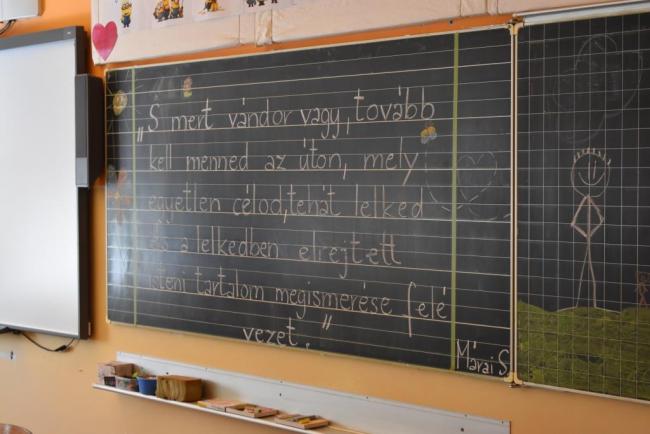 „S mert vándor vagy, tovább
kell menned az úton, mely
egyetlen célod, tehát lelked
és a lelkedben elrejtett
isteni tartalom megismerése felé
vezet."
Márai S.